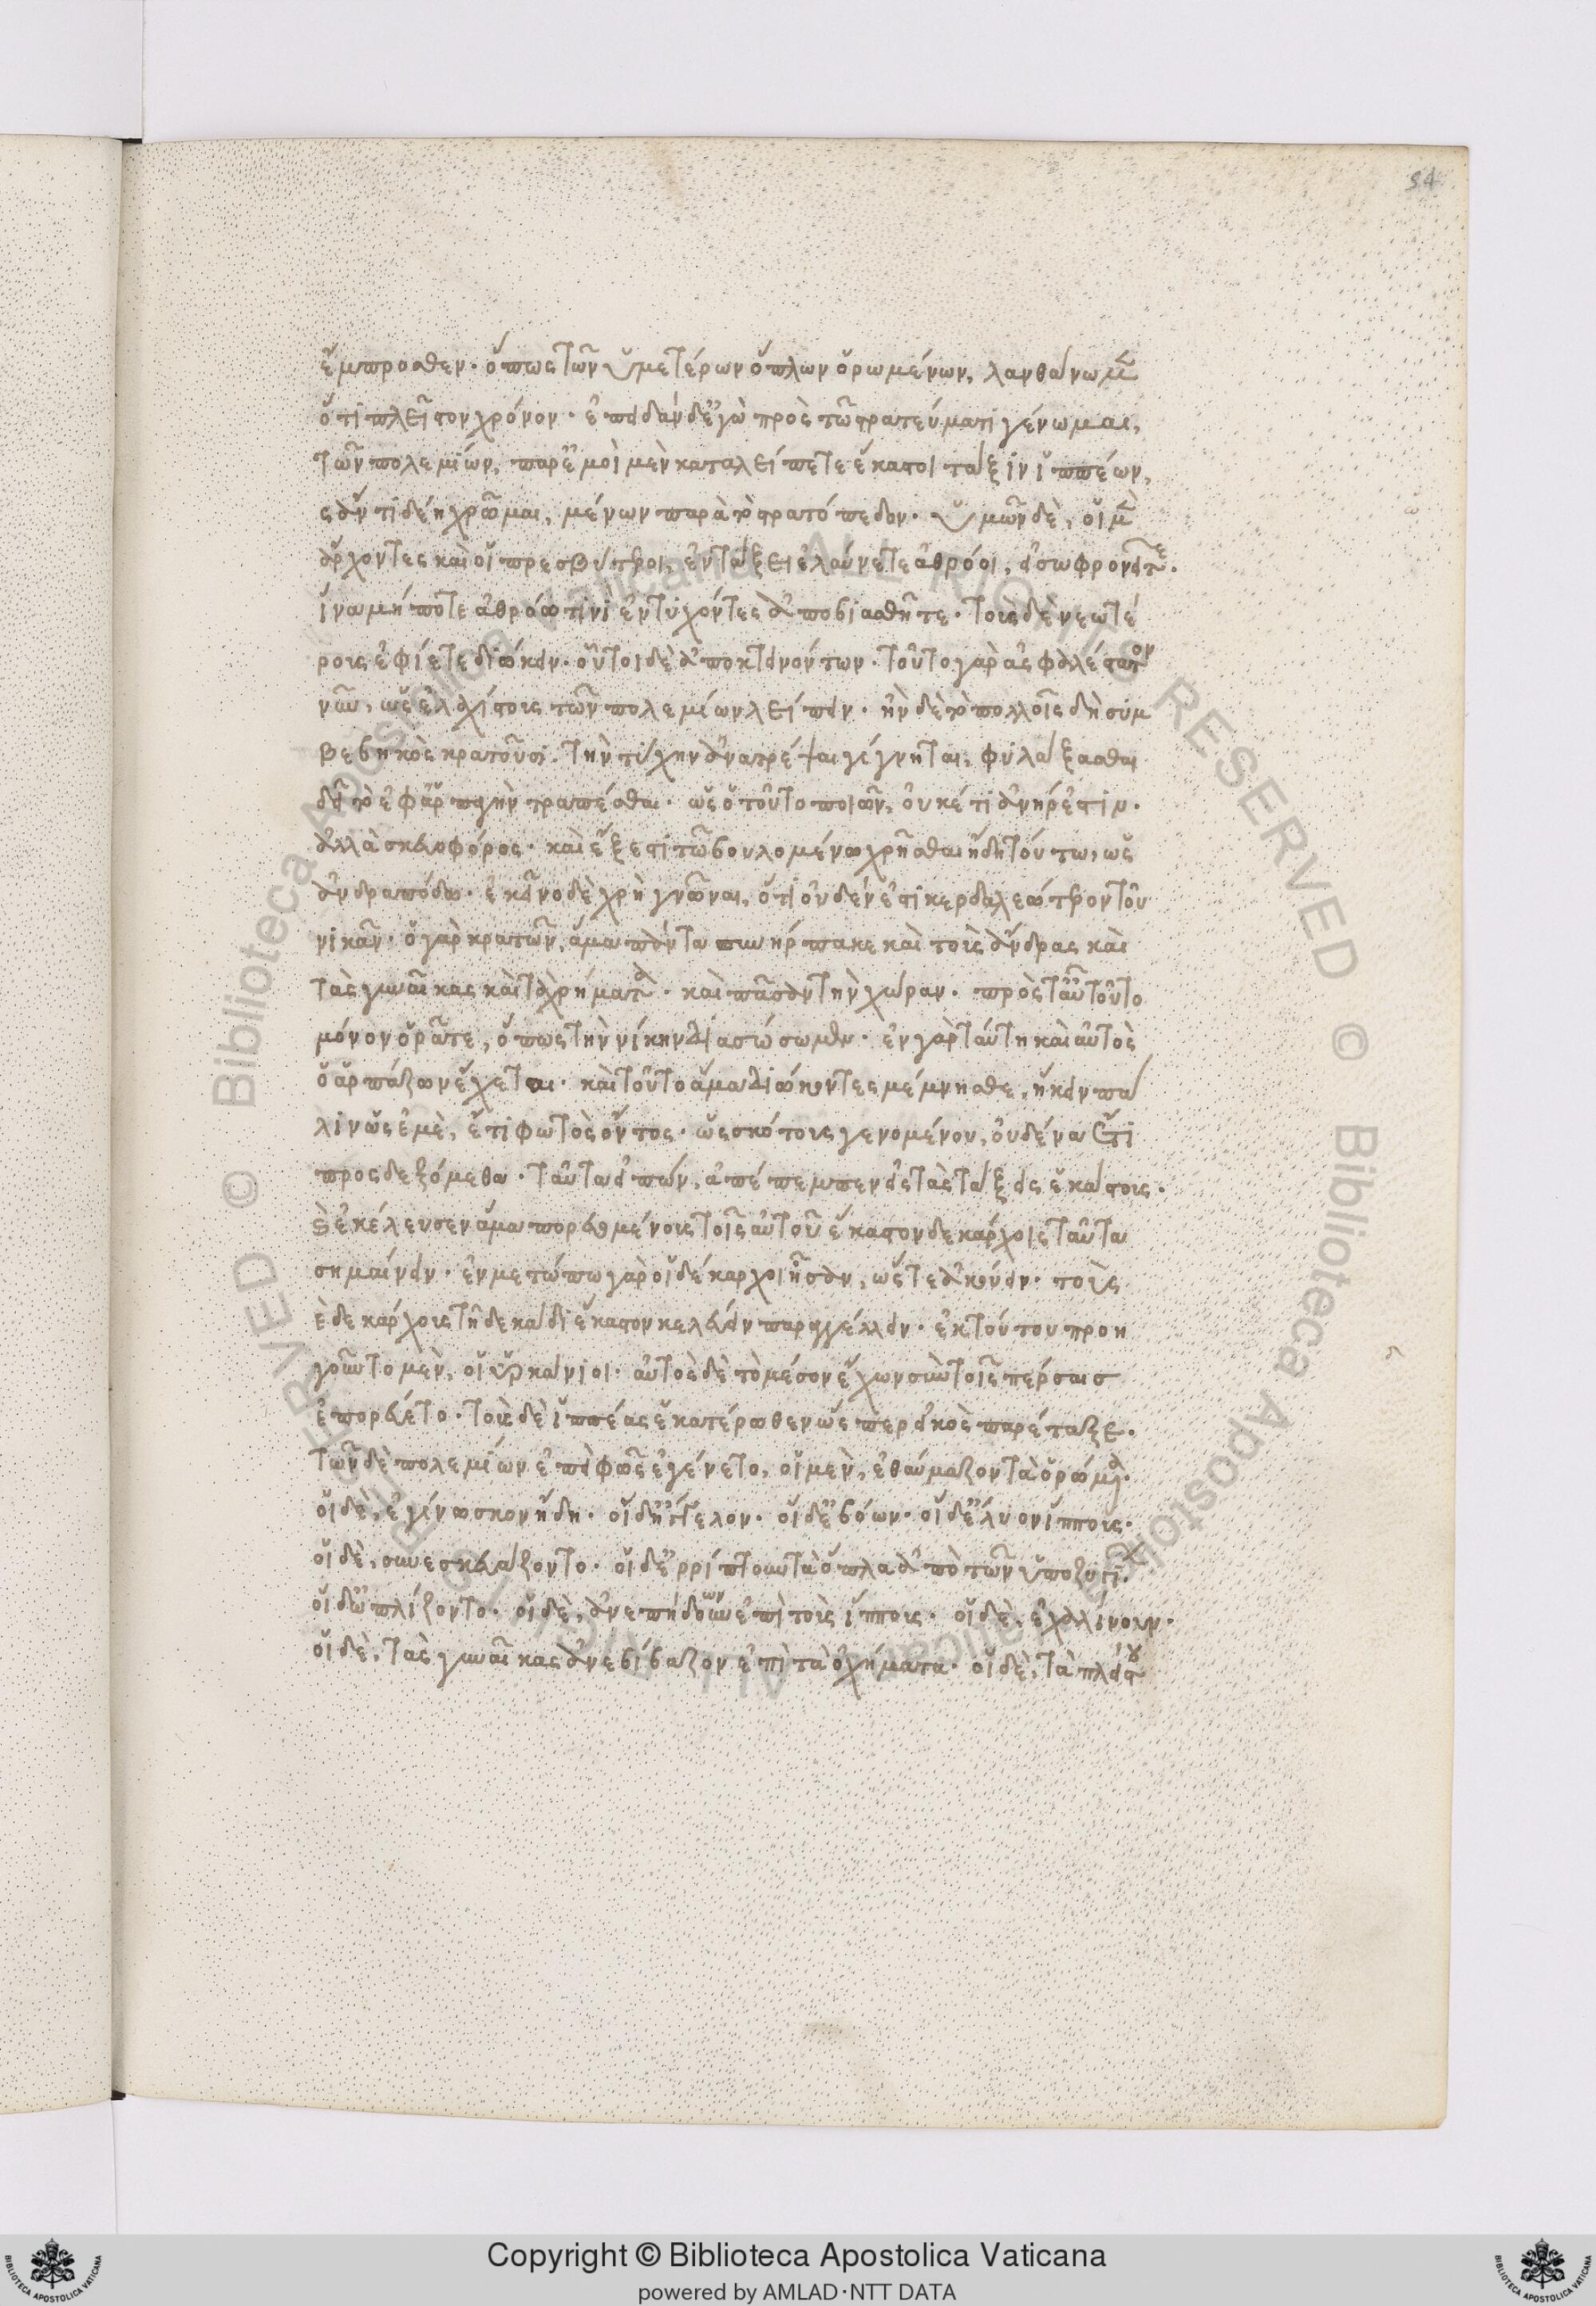 94
ἔμπροσθεν· ὅπως τῶν ὑμετέρων ὅπλων ὁρωμένων, λανθάνωμεν
ὅτι πλεῖστον χρόνον· ἐπειδὰν δ' ἐγὼ πρὸς τῶ στρατεύματι γένωμαι,
τῶν πολεμίων, παρ' ἐμοὶ μὲν καταλείπετε ἕκαστοι τάξιν ἱππέων,
ἐὰν τι δέη χρῶμαι, μένων παρὰ τὸ στρατόπεδον· ὑμῶν δὲ, οἱ μὲν
ἄρχοντες καὶ οἱ πρεσβύτεροι, ἐν τάξει ἐλαύνετε ἀθρόοι, εἰ σωφρονεῖτε·
ἵνα μήποτε ἀθρόω τινὶ ἐντυχόντες ἀποβιασθῆτε· τοὺς δὲ νεωτέ
ροις ἐφίετε διώκειν· οὗτοι δὲ ἀποκτεινόντων· τοῦτο γὰρ ἀσφαλέστατον
νῦν, ὡς ἐλαχίστους τῶν πολεμίων λείπειν· ἢν δὲ τὸ πολλοῖς δὴ συμ
βεβηκὸς κρατοῦσι τὴν τύχην ἀνατρέψαι γένηται, φυλάξασθαι
δεῖ τὸ ἐφ' ἁρπαγὴν τραπέσθαι· ὡς ὁ τοῦτο ποιῶν, οὐκέτι ἀνήρ ἐστιν·
ἀλλὰ σκευοφόρος· καὶ ἔξεστι τῶ βουλομένω χρῆσθαι ἤδη τούτω, ὡς
ἀνδραπόδω· ἐκεῖνο δὲ χρὴ γνῶναι, ὅτι οὐδέν ἐστι κερδαλεώτερον τοῦ
νικᾶν· ὁ γὰρ κρατῶν, ἅμα πάντα συνήρπακε καὶ τοὺς ἄνδρας καὶ
τὰς γυναῖκας καὶ τὰ χρήματα· καὶ πᾶσαν τὴν χώραν· πρὸς ταῦτα τοῦτο
μόνον ὁρᾶτε, ὅπως τὴν νίκην διασώσωμεν· ἐν γὰρ ταύτη καὶ αὐτὸς
ὁ ἁρπάζων ἔχεται· καὶ τοῦτο ἅμα διώκοντες μέμνησθε, ἥκειν πά
λιν ὡς ἐμὲ, ἔτι φωτὸς ὄντος· ὡς σκότους γενομένου, οὐδένα ἔτι
προσδεξόμεθα· ταῦτα εἰπών, ἀπέπεμπεν εἰς τὰς τάξεις ἑκάστους·
καὶ ἐκέλευσεν ἅμα πορευομένους τοῖς αὐτοῦ ἕκαστον δεκάρχοις ταῦτα
σημαίνειν· ἐν μετώπω γὰρ οἱ δέκαρχοι ἦσαν, ὥστε ἀκούειν· τοὺς
δὲ δεκάρχους τῆ δεκάδι ἕκαστον κελεύειν παραγγέλλειν· ἐκ τούτου προη
γοῦντο μὲν, οἱ ὑρκάνιοι· αὐτὸς δὲ τὸ μέσον ἔχων σὺν τοῖς πέρσαις
ἐπορεύετο· τοὺς δὲ ἱππέας ἑκατέρωθεν ὥσπερ εἰκὸς παρέταξε·
τῶν δὲ πολεμίων ἐπεὶ φῶς ἐγένετο, οἱ μὲν, ἐθαύμαζον τὰ ὁρώμενα·
οἱ δὲ, ἐγίνωσκον ἤδη· οἱ δ' ἤγγελον· οἱ δ' ἐβόων· οἱ δ' ἔλυον ἵππους·
οἱ δὲ, συνεσκευάζοντο· οἱ δ' ἐρρίπτουν τὰ ὅπλα ἀπὸ τῶν ὑποζυγίων·
οἱ δ' ὡπλίζοντο· οἱ δὲ, ἀνεπήδων ἐπὶ τοὺς ἵππους· οἱ δὲ, ἐχαλίνουν·
οἱ δὲ, τὰς γυναῖκας ἀνεβίβαζον ἐπὶ τὰ ὀχήματα· οἱ δὲ, τὰ πλείστου
Copyright © Biblioteca Apostolica Vaticana
powered by AMLAD·NTT DATA